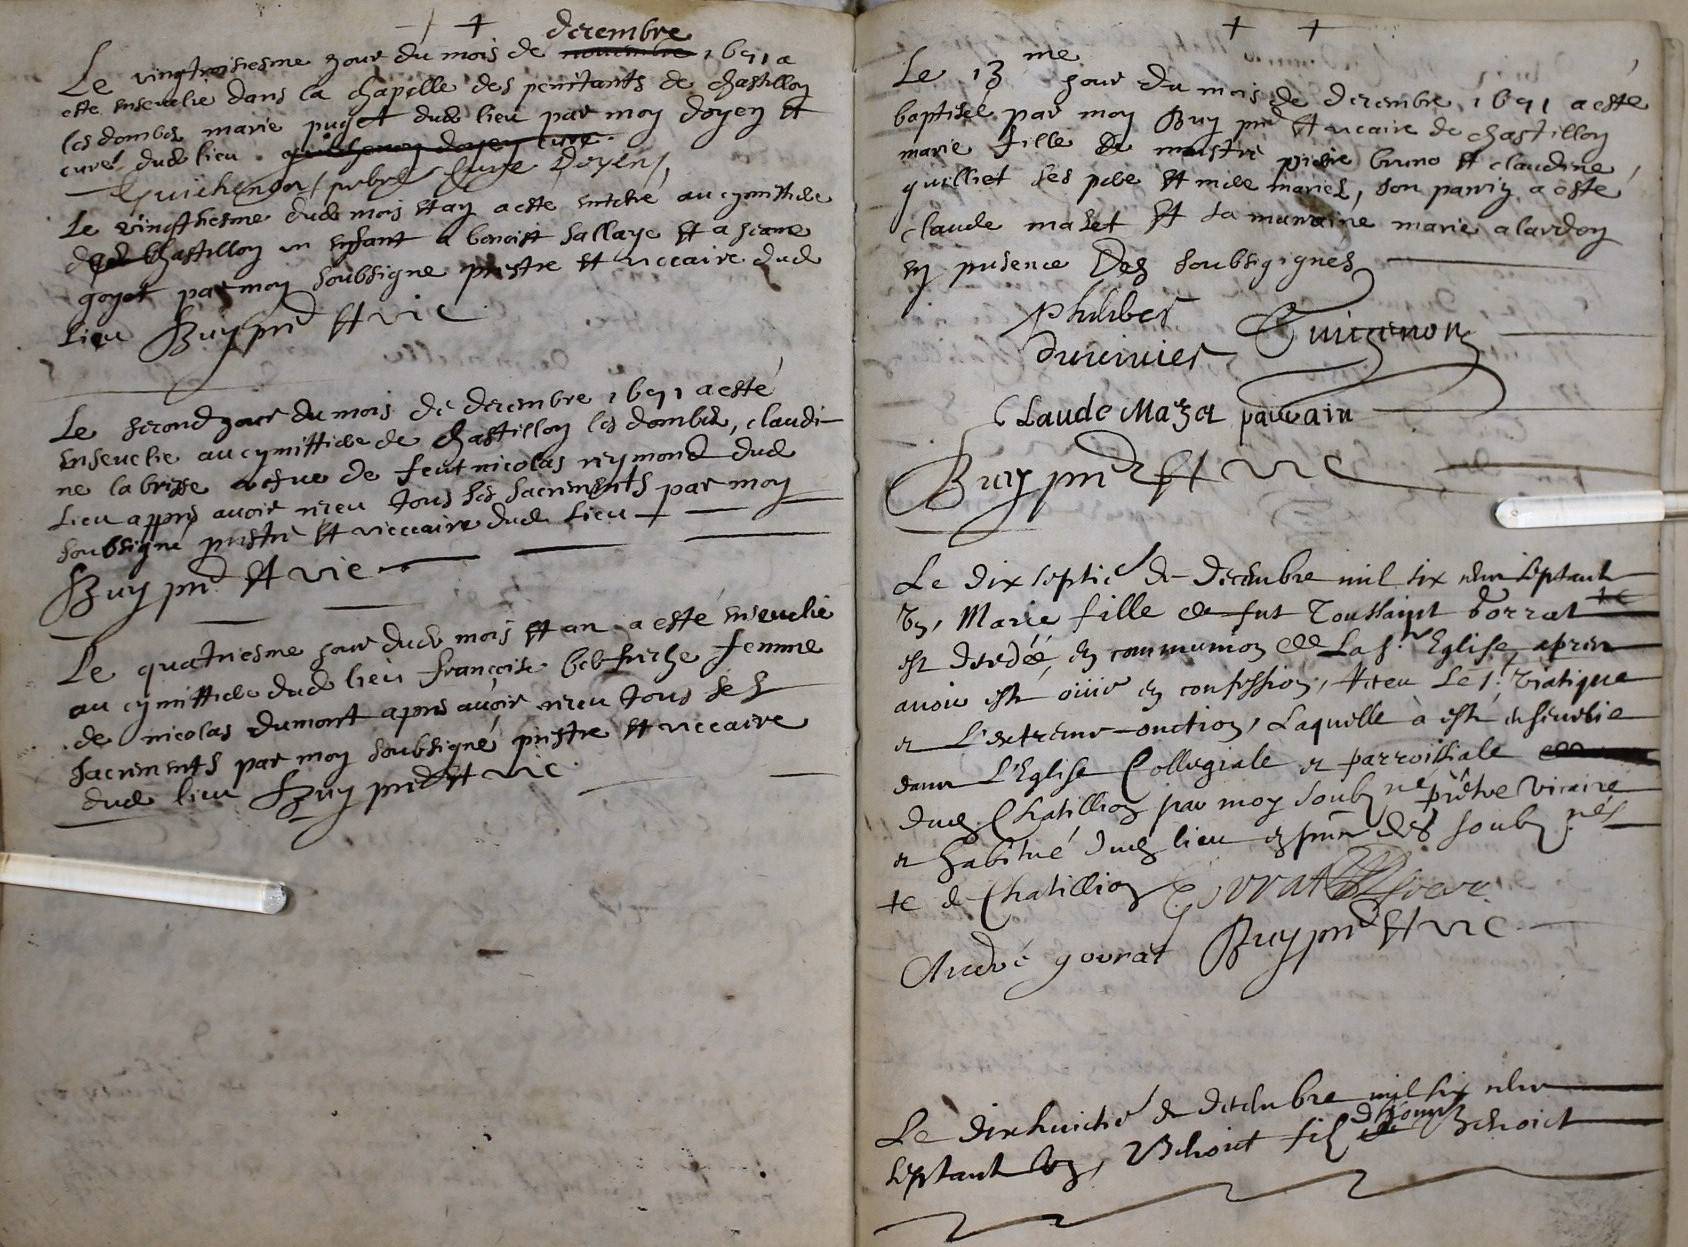 decembre
Le vingtroisiesme jour du mois de novembre 1671 a
este ensevelie dans la chapelle des penitants de chastillon
les dombes marie puget dud lieu par moy doyen et
curé dud lieu. guichenon doyen cure.
Guichenon prebre Cure Doyen
Le vingtiesme dud mois et an a esté enterré au cymittiere
dud Chastillon un enfant a benoist sallaye et a jeane
goyet par moy soubsigne prestre et viccaire dud
lieu Buy pre et vic
Le second jour du mois de decembre 1671 a esté
ensevelie au cymittiere de chastillon les dombes, claudi-
ne labrisse vefve de feut nicolas reymond dud
lieu appres avoir receu tous ses sacrements par moy
soubsigné prestre et viccaire dud lieu
Buy pre et vic
Le quatriesme jour dud mois et an a esté ensevelie
au cymittiere dud lieu françoise femme
de nicolas dumont apres avoir receu tous ses
sacrements par moy soubsigné prestre et viccaire
dud lieu Buy pre et vic
Le 13 me jour du mois de decembre 1671 a esté
baptisée par moy Buy pre et vicaire de chastillon
marie fille de maistre pierre bruno et claudine
quilliet ses pere et mere mariés, son parrin a esté
claude mazet et sa marraine marie alardon
en presence Des soubsignés
Philiber Guichenon
Duvivier
Claude Mazet parrain
Buy pre et vic
Le dix septie de Decembre mil six cens septante
Un, Marie fille de fut Toussaint Gorrat
est decedéé en communion de La ste Eglise apres
avoir esté ouiie en confession, receu Le st Viatique
et L'extreme-onction, Laquelle a esté ensevelie
dans L'Eglise Collegiale et parroissiale
dud Chatillion par moy soub ne prêtre Vicaire
et habitué dud lieu en pnce des soub nés
te de Chatillion Gorrat
André gorrat Buy pre et vic
Le dixhuictie de decembre mil six cens
septante Un, Benoict fil de Benoict